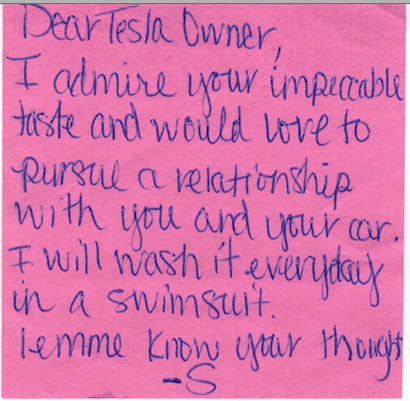 Dear Tesla Owner,
I admire your impeccable
taste and would love to
pursue a relationship
with you and your car.
I will wash it everyday
in a swimsuit.
lemme know your thoughts
-S